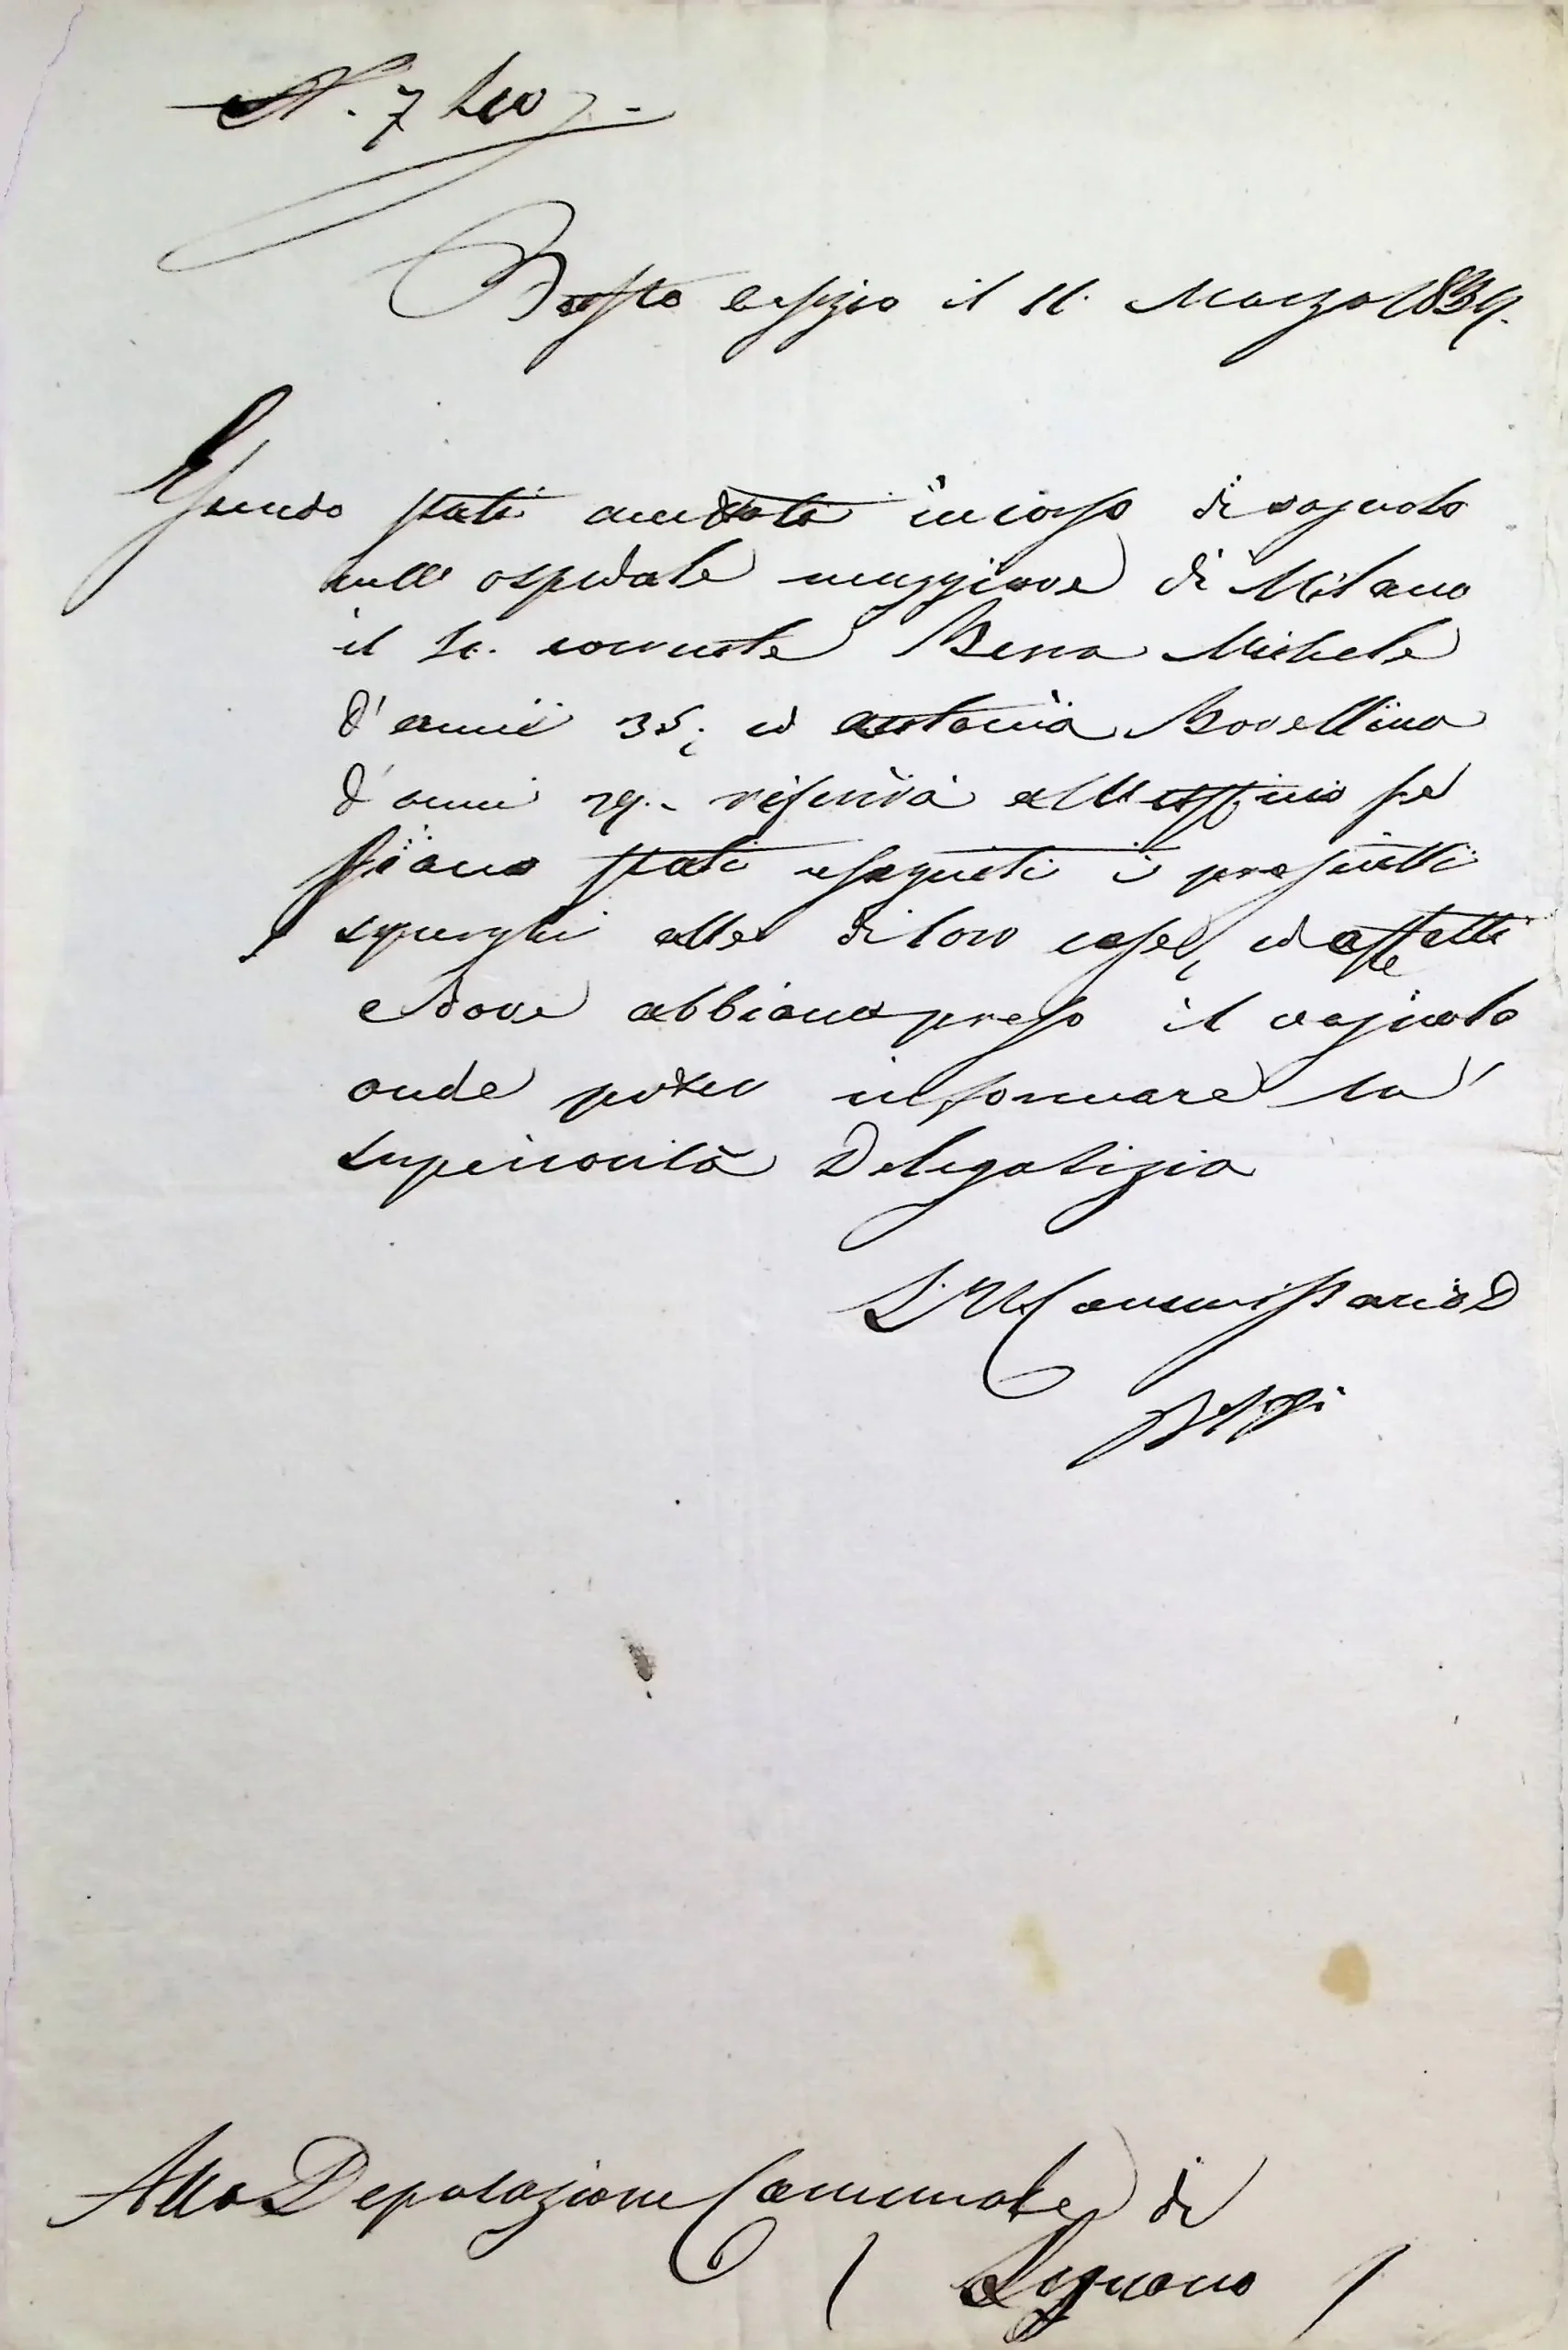 N. 7
Busto arsizio il 11. Marzo 1839.
Essendo stati accettati in corso di vajuolo
nell' ospedale maggiore di Milano
il corrente Berra Michele
d'anni 35; ed antonia Borellina
d'anni 29. riferirà all' ufficio se
siano stati eseguiti i prescritti
spurghi alle di loro case, ed effetti
e dove abbiano preso il vajuolo
onde poter informare la
superiorità Delegatizia
Commissario D
Alla Deputazione Comunale di
Legnano